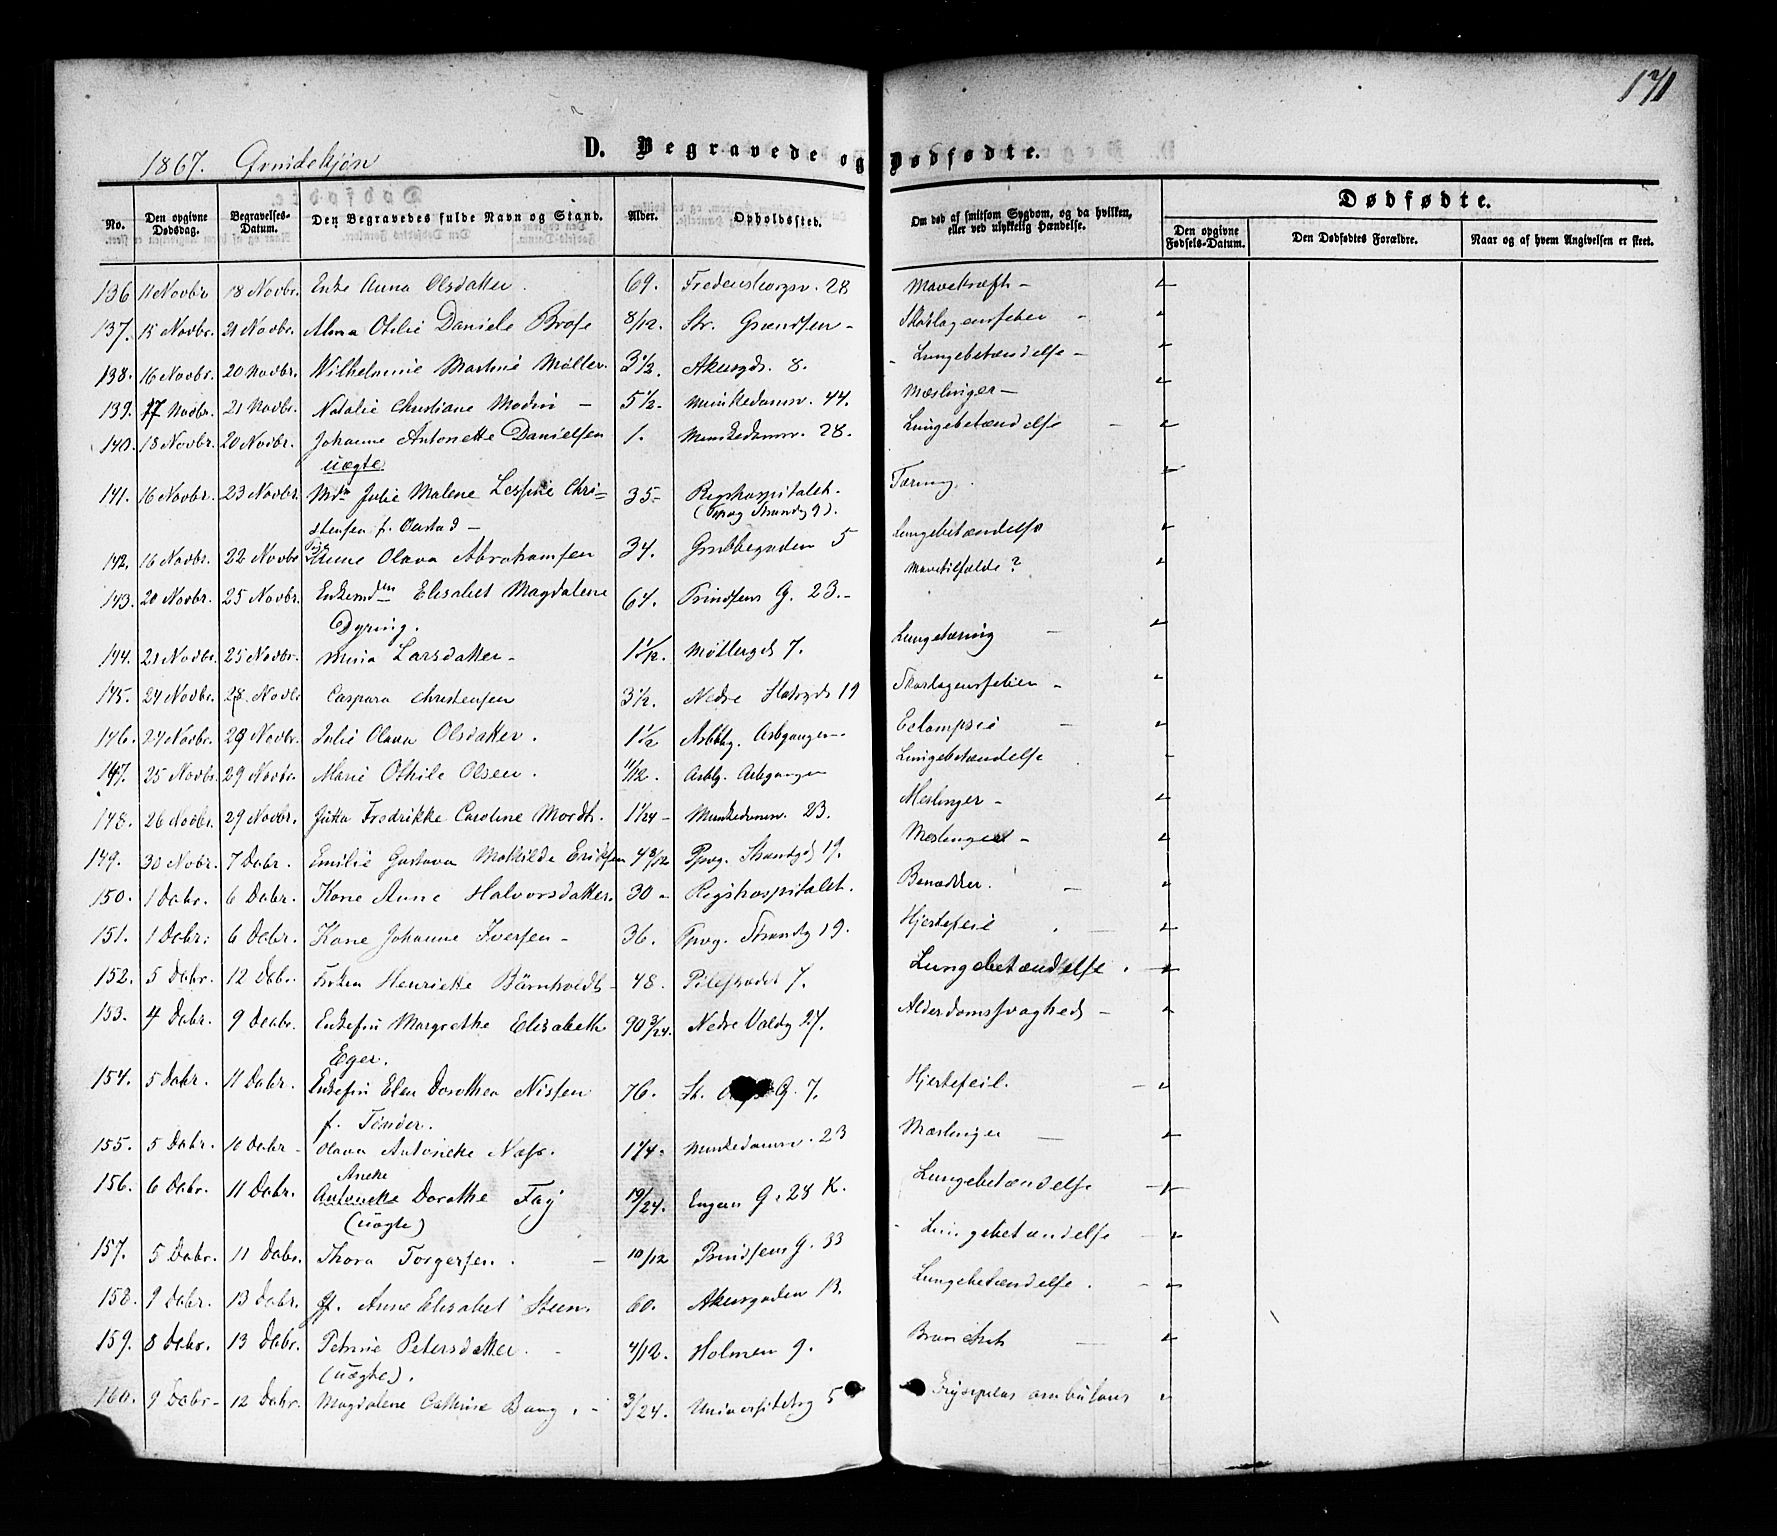 171
1867. Qvindekjøn
D. Begravede og Dødfødte.
Dødfødte.
No. Den opgivne Dødsdag. Begravelses-Datum. Den Begravedes fulde Navn og Stand. Alder. Opholdssted. Om død af smitsom Sygdom, og da hvilken, eller ved ulykkelig Hændelse. Den opgivne Fødsels-Datum. Den Dødfødtes Forældre. Naar og af hvem Angivelsen er skeet.
136 11 Novbr 18 Novbr. Enke Anna Olsdatter. 69. Fredensborgsv. 28 Mavekræft -
137. 15 Novbr. 21 Novbr. Alma Othilie Daniele Brose 8/12. Str. Grændsen - Skarlagensfeber -
138. 16 Novbr. 20 Novbr. Wilhelmine Martine Møller. 3 1/2. Akersgd. 8. Lungebetændelse -
139. 17 Novbr. 21 Novbr. Natalie Christiane - 5 1/2. Munkedamsv. 44. Mæslinger -
140. 18 Novbr. 20 Novbr. Johanne Antonette Danielsen 1. Munkedamsv. 28. Lungebetændelse -
uægte
141. 16 Novbr. 23 Novbr. Mdm Julie Malene Chri= 35- Rigshospitalet. Tæring.
stensen f. -
(Pipvg Strandg 9).
142. 16 Novbr. 22 Novbr Anne Olava Abrahamsen 34. Grubbegaden 5 Lungebetændelse
143. 20 Novbr. 25 Novbr. Enkemdm Elisabet Magdalene 64. Prindsens G. 23.- Mavetilfælde?
Dyring.
144. 21 Novbr. 25 Novbr. Mina Larsdatter - 1 1/12. Møllergd 7. Lungetæring -
145. 24 Novbr. 28. Novbr Caspara Christensen 3 1/2. Nedre Slotsgd 19 Skarlagensfeber -
146. 27 Novbr. 29 Novbr. Julie Olava Olsdatter. 1 1/2 Asbbg. Asbgangen - Eclampsie -
147. 25 Novbr. 29 Novbr. Marie Othile Olsen. 11/12. Asbbg. Asbgangen Lungebetændelse
148. 26 Novbr. 29 Novbr. Jutta Fredrikke Caroline Mordt. 1 1/24 - Munkedamsv. 23. Meslinger -
149. 30 Novbr. 7 Dcbr. Emilie Gustava Mathilde Eriksen 4 8/12 Ppvg. Strandgd 19. Meslinger -
150. 1 Dcbr. 6 Dcbr. Kone Anne Halvorsdatter. 30 - Rigshospitalet.
151. 1 Dcbr. 6 Dcbr. Kone Johanne Iversen - 36. Ppvg. Strandg 19. Hjertefeil
152. 5 Dcbr. 12 Dcbr. Frøken Henriette Bärnholdt - 48. Pilestrædet 7. Lungebetændelse.
153. 4 Dcbr. 9 Decbr. Enkefru Margrethe Elisabeth 90 3/24. Nedre Voldg 27. Alderdomssvaghed -
Eger.
154. 5 Dcbr. 11 Dcbr. Enkefru Elen Dorothea Nissen 76. St. G. 7. Hjertefeil.
f. Tønder.
155. 5 Dcbr. 10 Dcbr - Olava Antonette Næss. 1 1/4. Munkedamsv. 23 Mæslinger -
Anette
156. 6 Dcbr. 11 Dcbr. Antonette Dorothe Fay 19/24. Engens G. 28 K. Lungebetændelse
(uægte)
157. 5 Dcbr. 11 Dcbr. Thora Torgersen. - 10/12 Prindsens G. 33 Lungebetændelse
158. 9 Dcbr. 13 Dcbr. Anne Elisabet Steen 60. Akersgaden 13. Lungebetændelse.
159. 8 Dcbr. 13 Dcbr. Petrine Petersdatter. - 4/12. Holmen 9. Bronchit
(uægte).
160. 9 Dcbr - 12 Dcbr. Magdalene Cathrine Bang. - 3/24. Universitetsg 5 Erysipelas ambulans